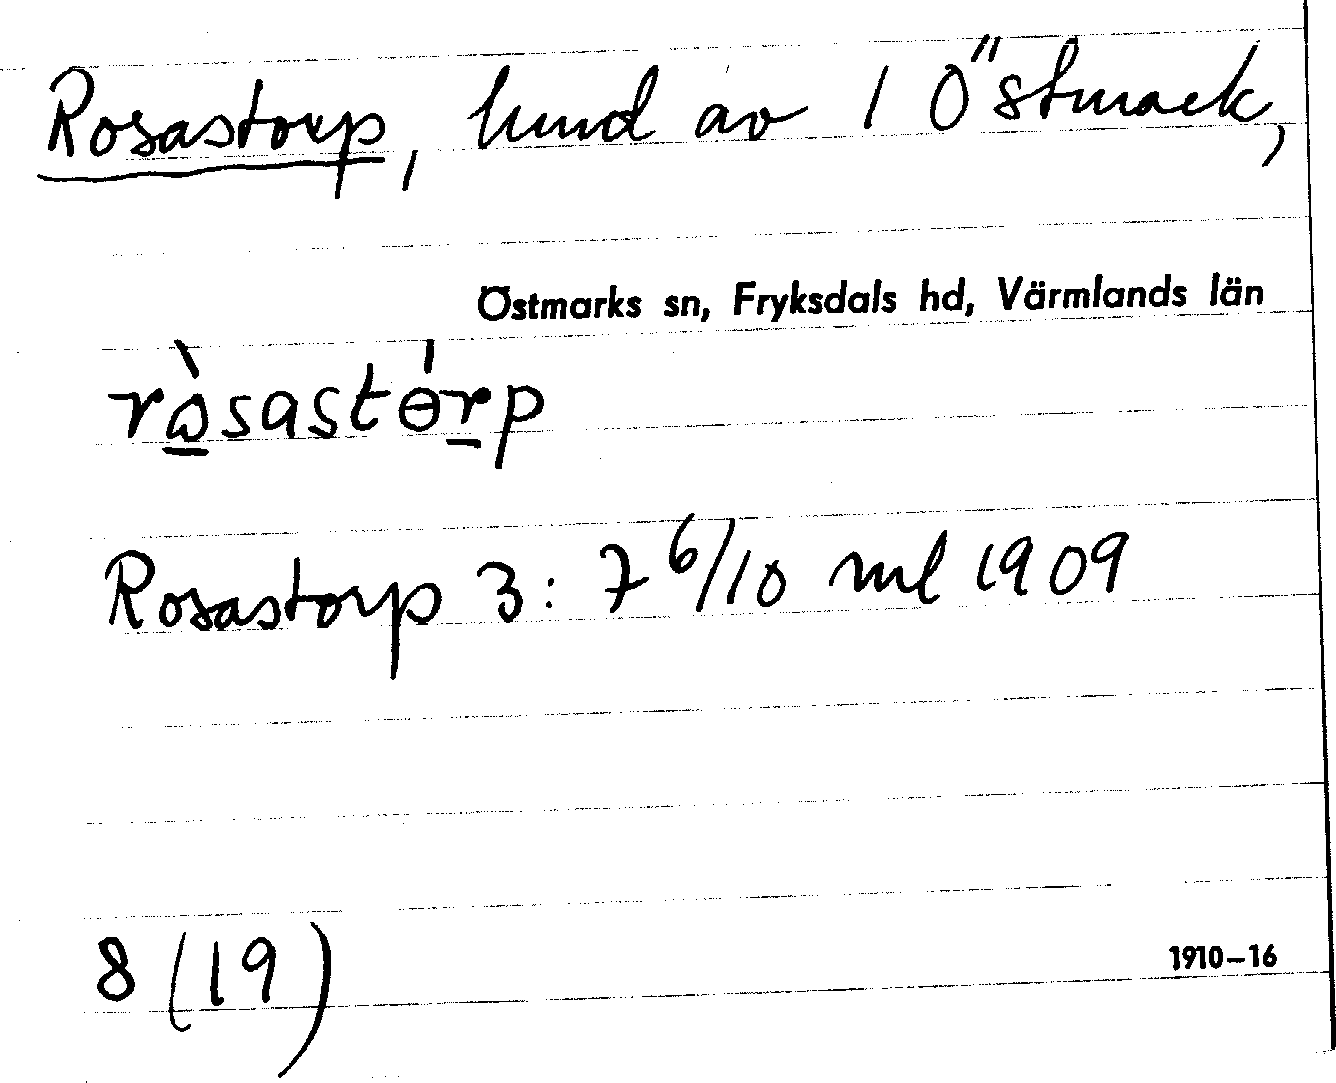 Rosastorp, hmd av 1 Östmark,
Östmarks sn, Fryksdals hd, Värmlands län
rò̱sastɵ́r̲p
Rosastorp 3: 7 6/10 ml 1909
8 (19)
1910–16